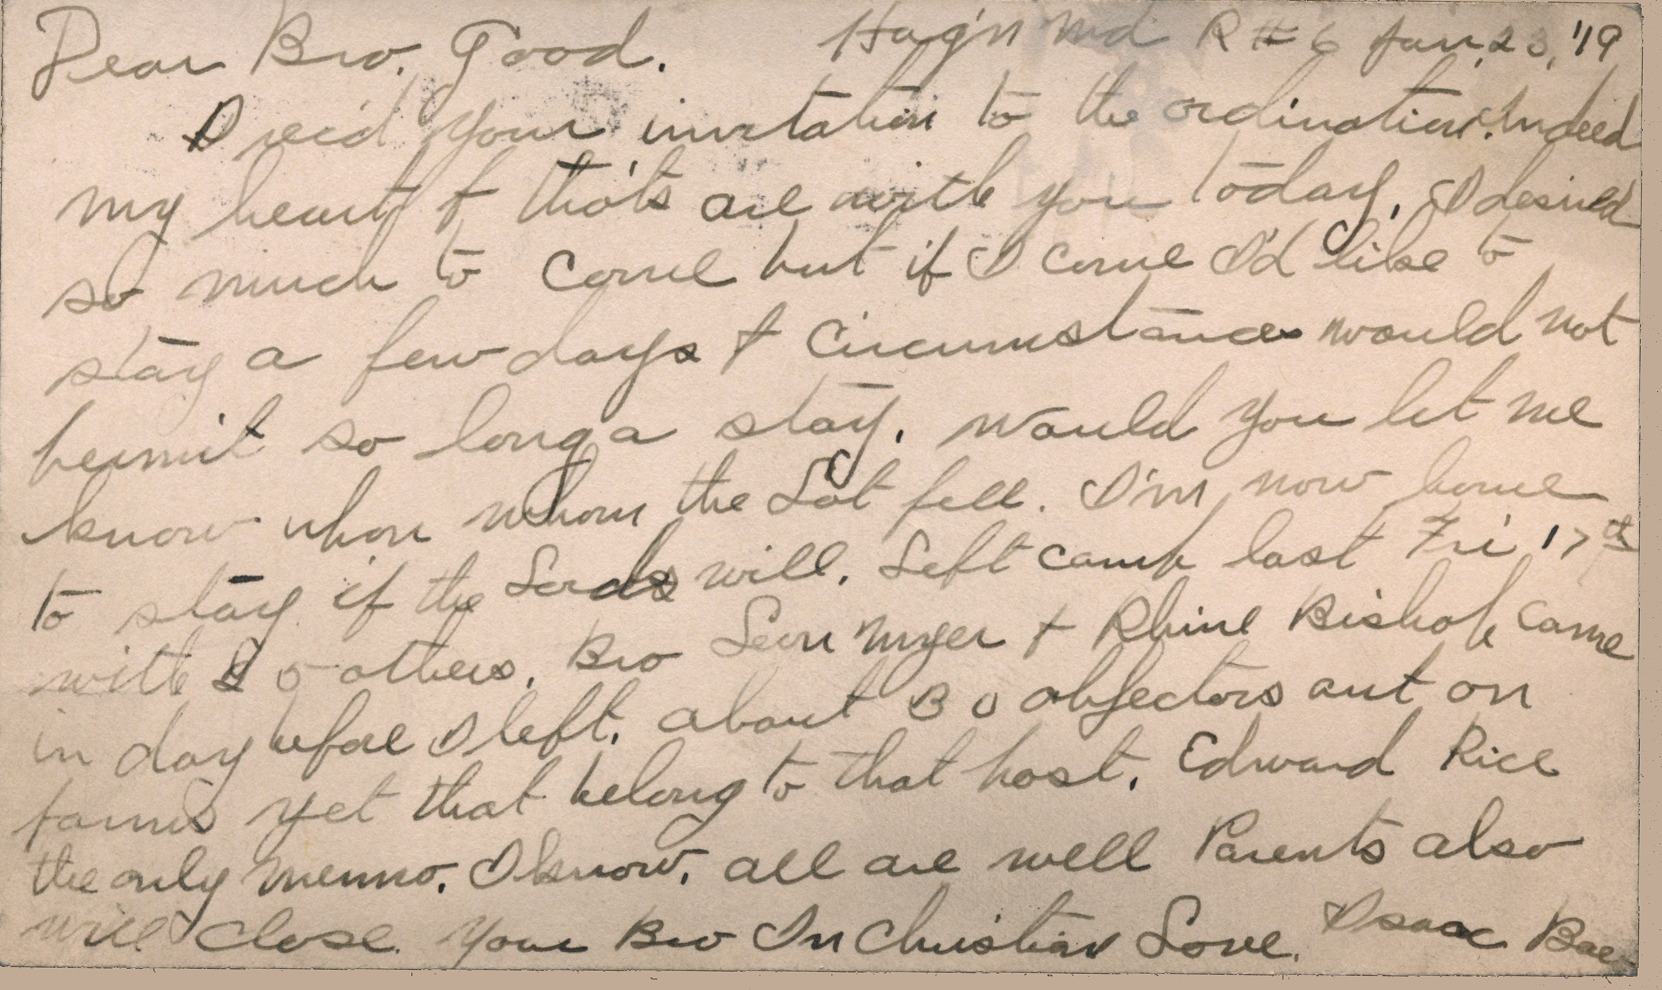 Dear Bro. Good. Hag'n Md R#6 Jan. 23, '19
I rec'd your invitation to the ordination. Indeed
my heart & tho'ts are with you today. I desired
so much to come but if I come I'd like to
stay a few days & circumstances would not
permit so long a stay. Would you let me
know upon whom the Lot fell. I'm now home
to stay if the Lords will. Left camp last Fri 17th
with others. Bro Leon Myer & Rhine Bishop came
in day before I left. about 30 objectors out on
farms yet that belong to that post. Edward Rice
the only Menno. I know. all are well Parents also
will close. Your Bro In Christian Love. Isaac Baer